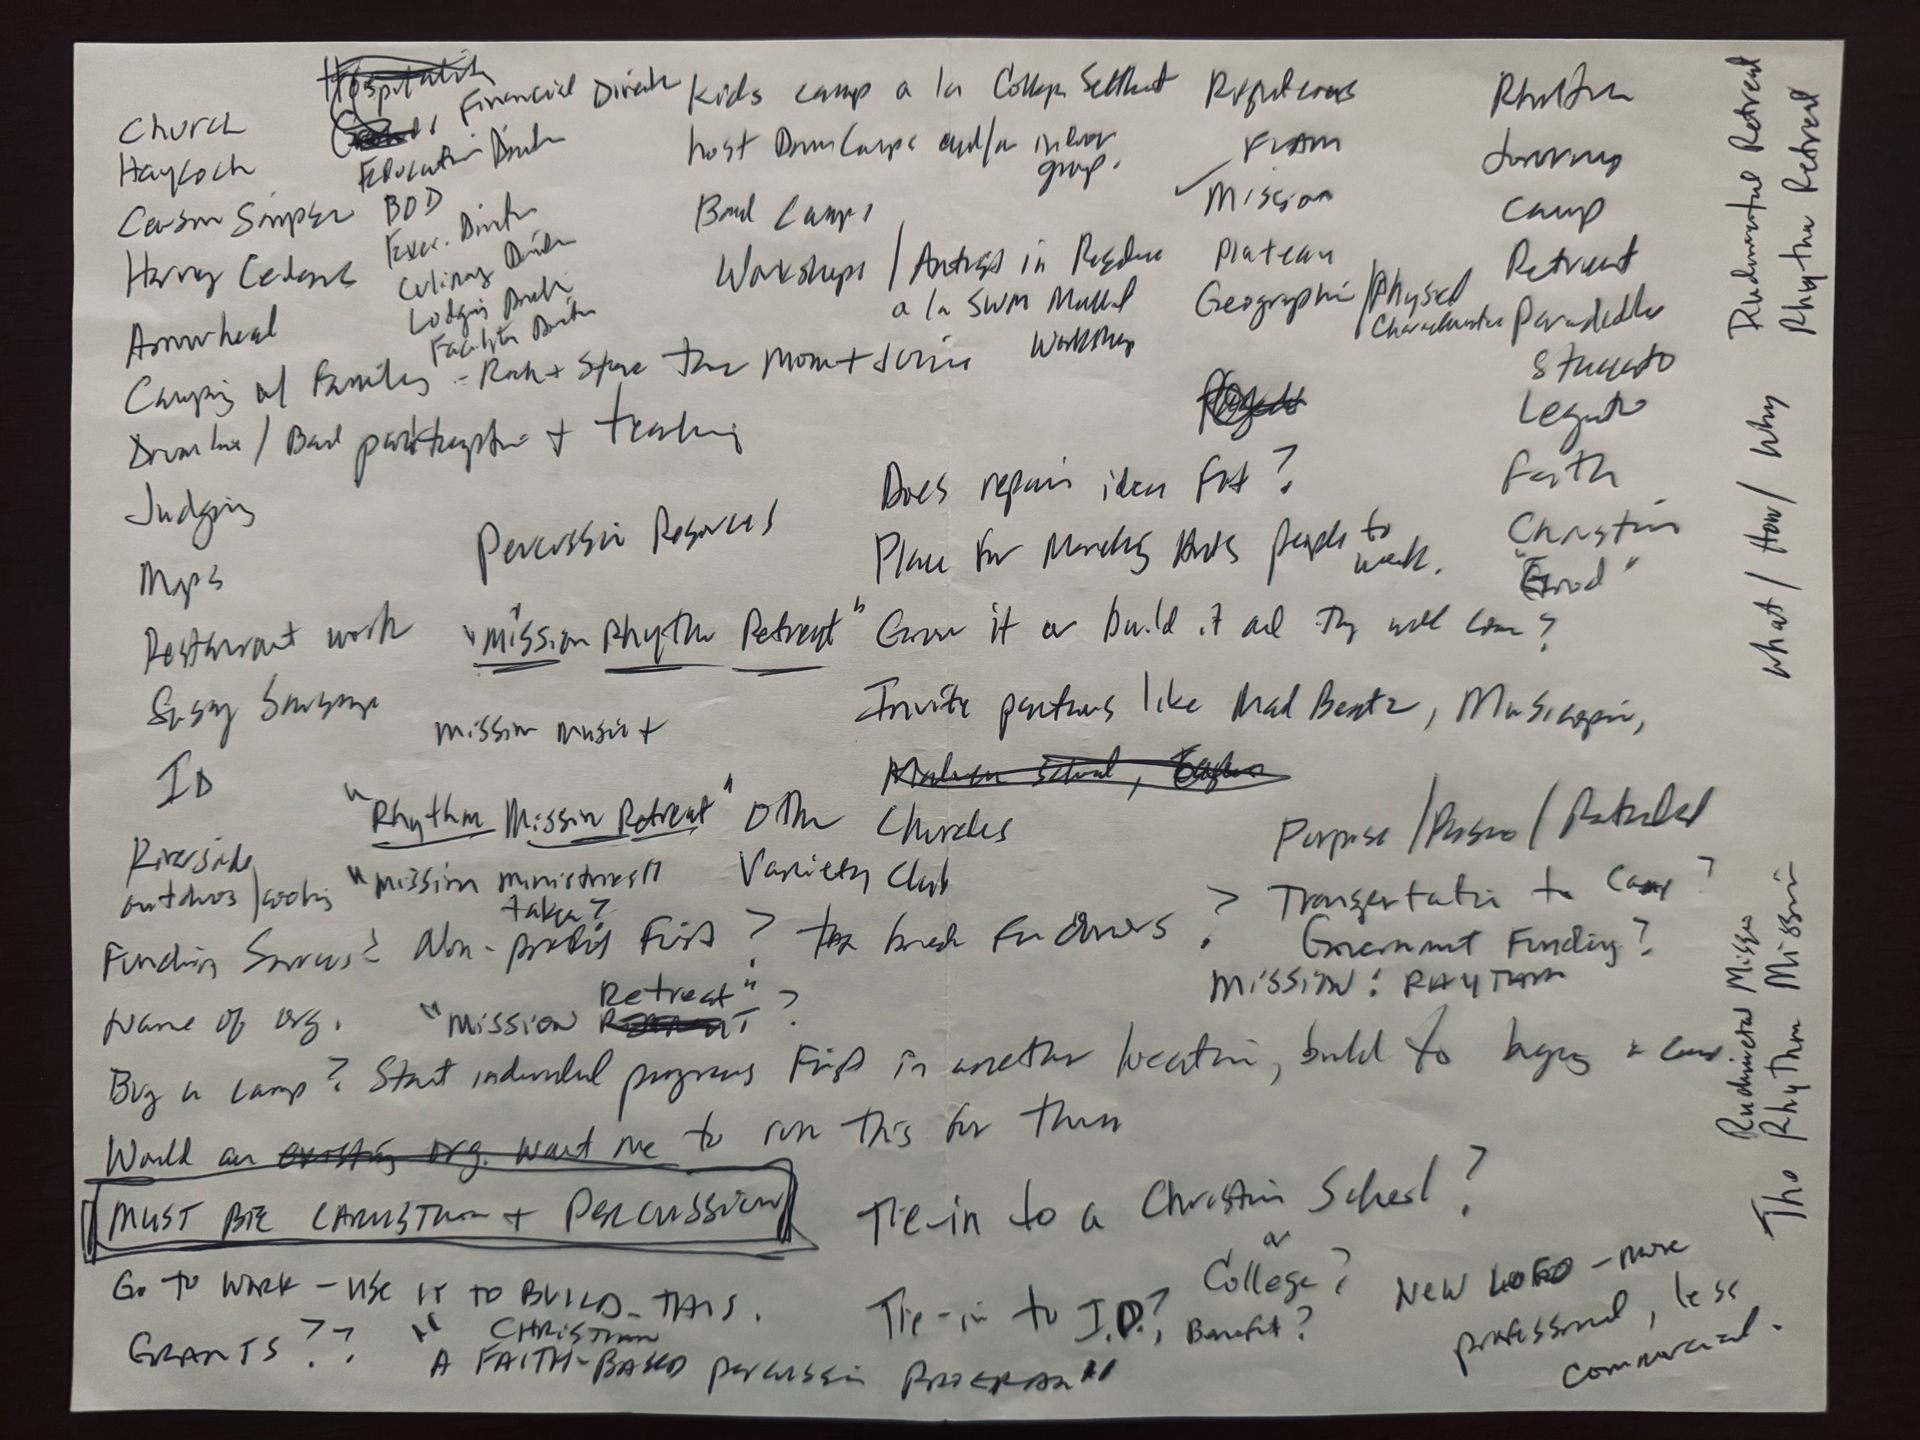 Church
Haycock
Harvey Cedars
Arrowhead
Camping w/ Families - Rock + Stone
Drumline / Band participation + teaching
Judging
Mgps
Restaurant work
ID
Riverside
outdoors /
Hospitality
Financial Director
Education Director
BOD
Exec. Director
Culinary Director
Lodging Director
Facilities Director
Kids camp a la College Settlement
host Drum Camps and/or indoor
group.
Band Camps
Workshops / Artists in Residence
a la SWM Mallet
Workshop
FRAM
✓ Mission
Plateau
Geographic / Physical
Characteristics
Rhythm
Journey
Camp
Retreat
Paradiddle
Staccato
Legato
Faith
Christian
Percussion Resources
"Mission Rhythm Retreat"
Mission Music +
"Rhythm Mission Retreat"
"Mission Ministries"
taken?
Does repair idea fit?
Place for Marching Arts people to
work.
Grow it or build it and they will come?
Invite partners like Mad Beatz, Musicopia,
Other Churches
Variety Club
Purpose / Person / Potential
Funding Sources? Non-profit First? Tax break for donors?
Transportation to Camp?
Government Funding?
MISSION: RHYTHM
Name of org. "MISSION Retreat"?
Buy a camp? Start individual programs First in another location, build to buying a camp
Would an existing org. want me to run this for them
MUST BE CHRISTIAN + PERCUSSION
Tie-in to a Christian School?
or
College?
GO TO WORK - USE IT TO BUILD THIS.
Tie-in to I.D.? Benefit?
NEW LOGO - more
professional, less
commercial.
GRANTS??
CHRISTIAN
"A FAITH-BASED percussion PROGRAM"
Rudimental Retreat
Rhythm Retreat
What / How / Why
Rudimental Mission
The Rhythm Mission